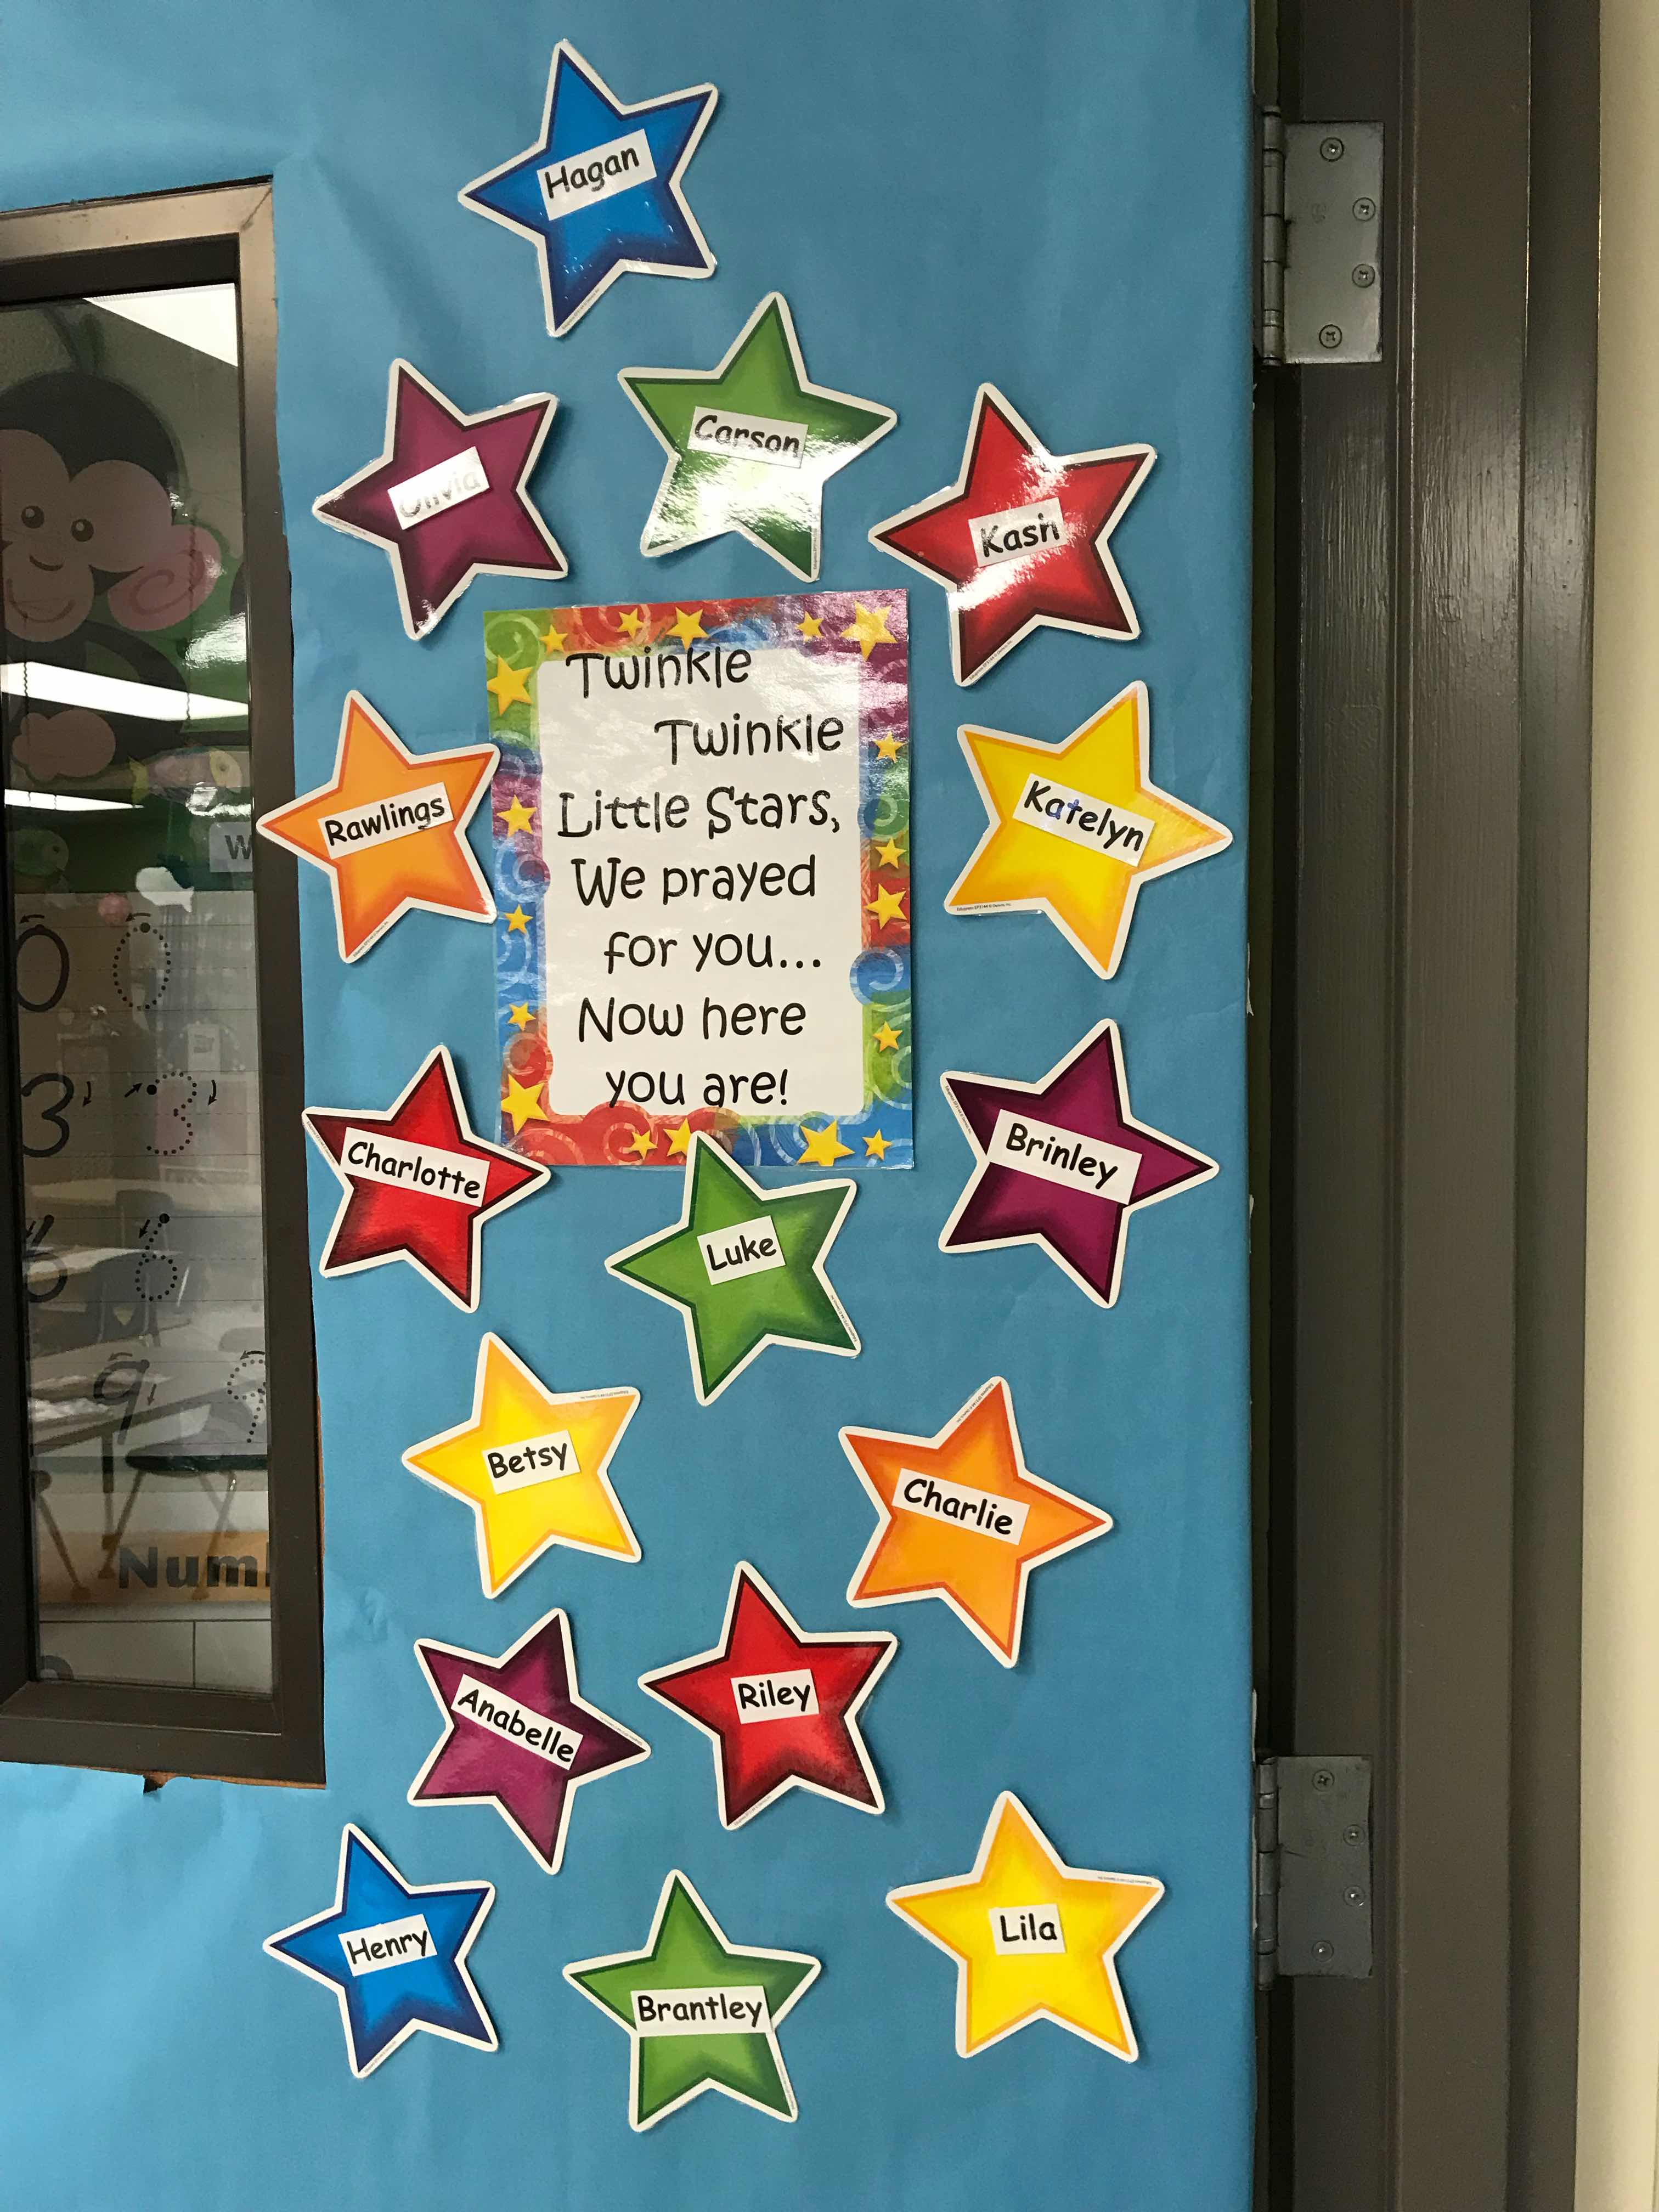 Hagan
Carson
Olivia
Kash
Twinkle
Twinkle
Little Stars,
We prayed
for you...
Now here
you are!
Rawlings
Katelyn
Charlotte
Brinley
Luke
Betsy
Charlie
Anabelle
Riley
Henry
Brantley
Lila
W
0 0
3 3
6 6
9 9
Num